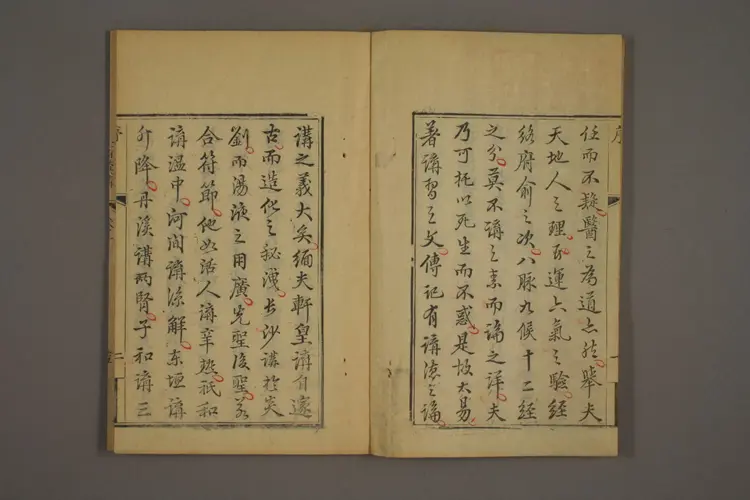 序
任而不疑醫之為道亦然舉夫
天地人之理五運六氣之驗經
絡府俞之次八脈九候十二經
之分莫不講之素而論之詳夫
乃可托以死生而不惑是故大易
著講習之文傳記有講德之論
講之義大矣緬夫軒皇講自邃
古而造化之秘洩長沙講於炎
劉而湯液之用廣先聖後聖若
合符節他如活人講辛熱祗和
講溫中河間講涼解東垣講
升降丹溪講兩腎子和講三